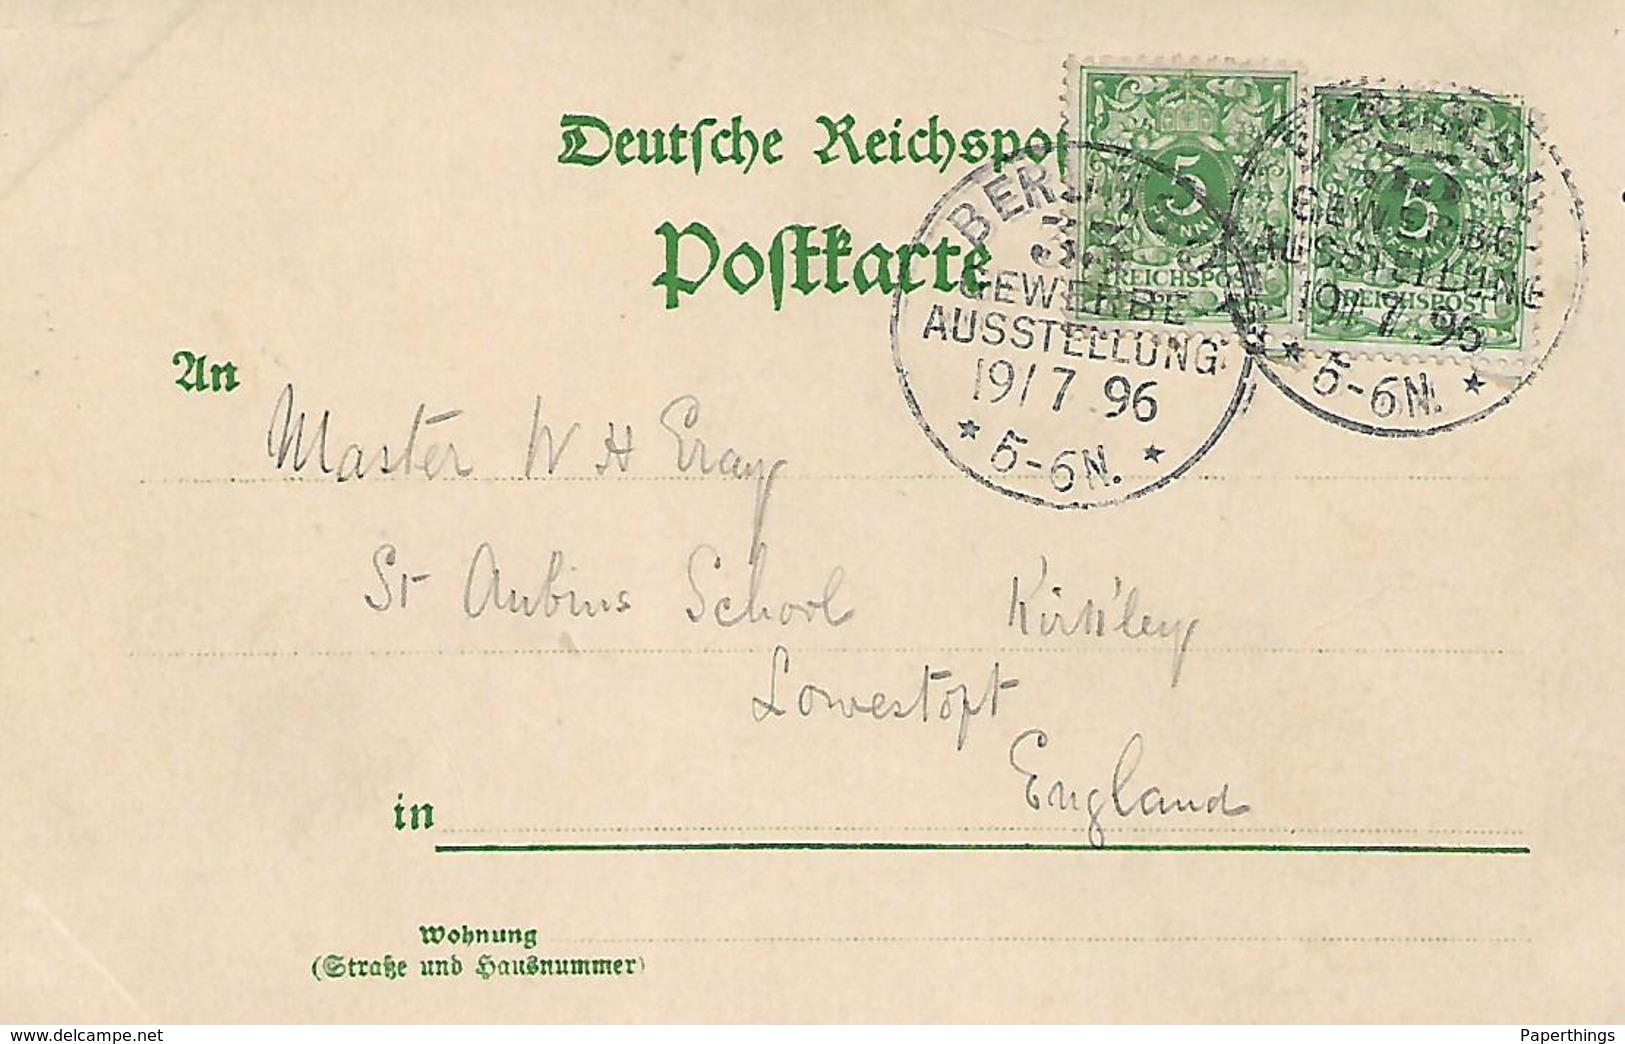 Deutsche Reichspost
Postkarte
5
PFENNIG
REICHSPOST
5
PFENNIG
REICHSPOST
BERLIN
GEWERBE
AUSSTELLUNG
19/7 96
* 5-6N. *
BERLIN
GEWERBE-
AUSSTELLUNG
19/7.96
* 5-6N. *
An
Master W H Eray
St Aubins School Kirkley
Lowestoft
England
in
Wohnung
(Straße und Hausnummer)
www.delcampe.net
Paperthings